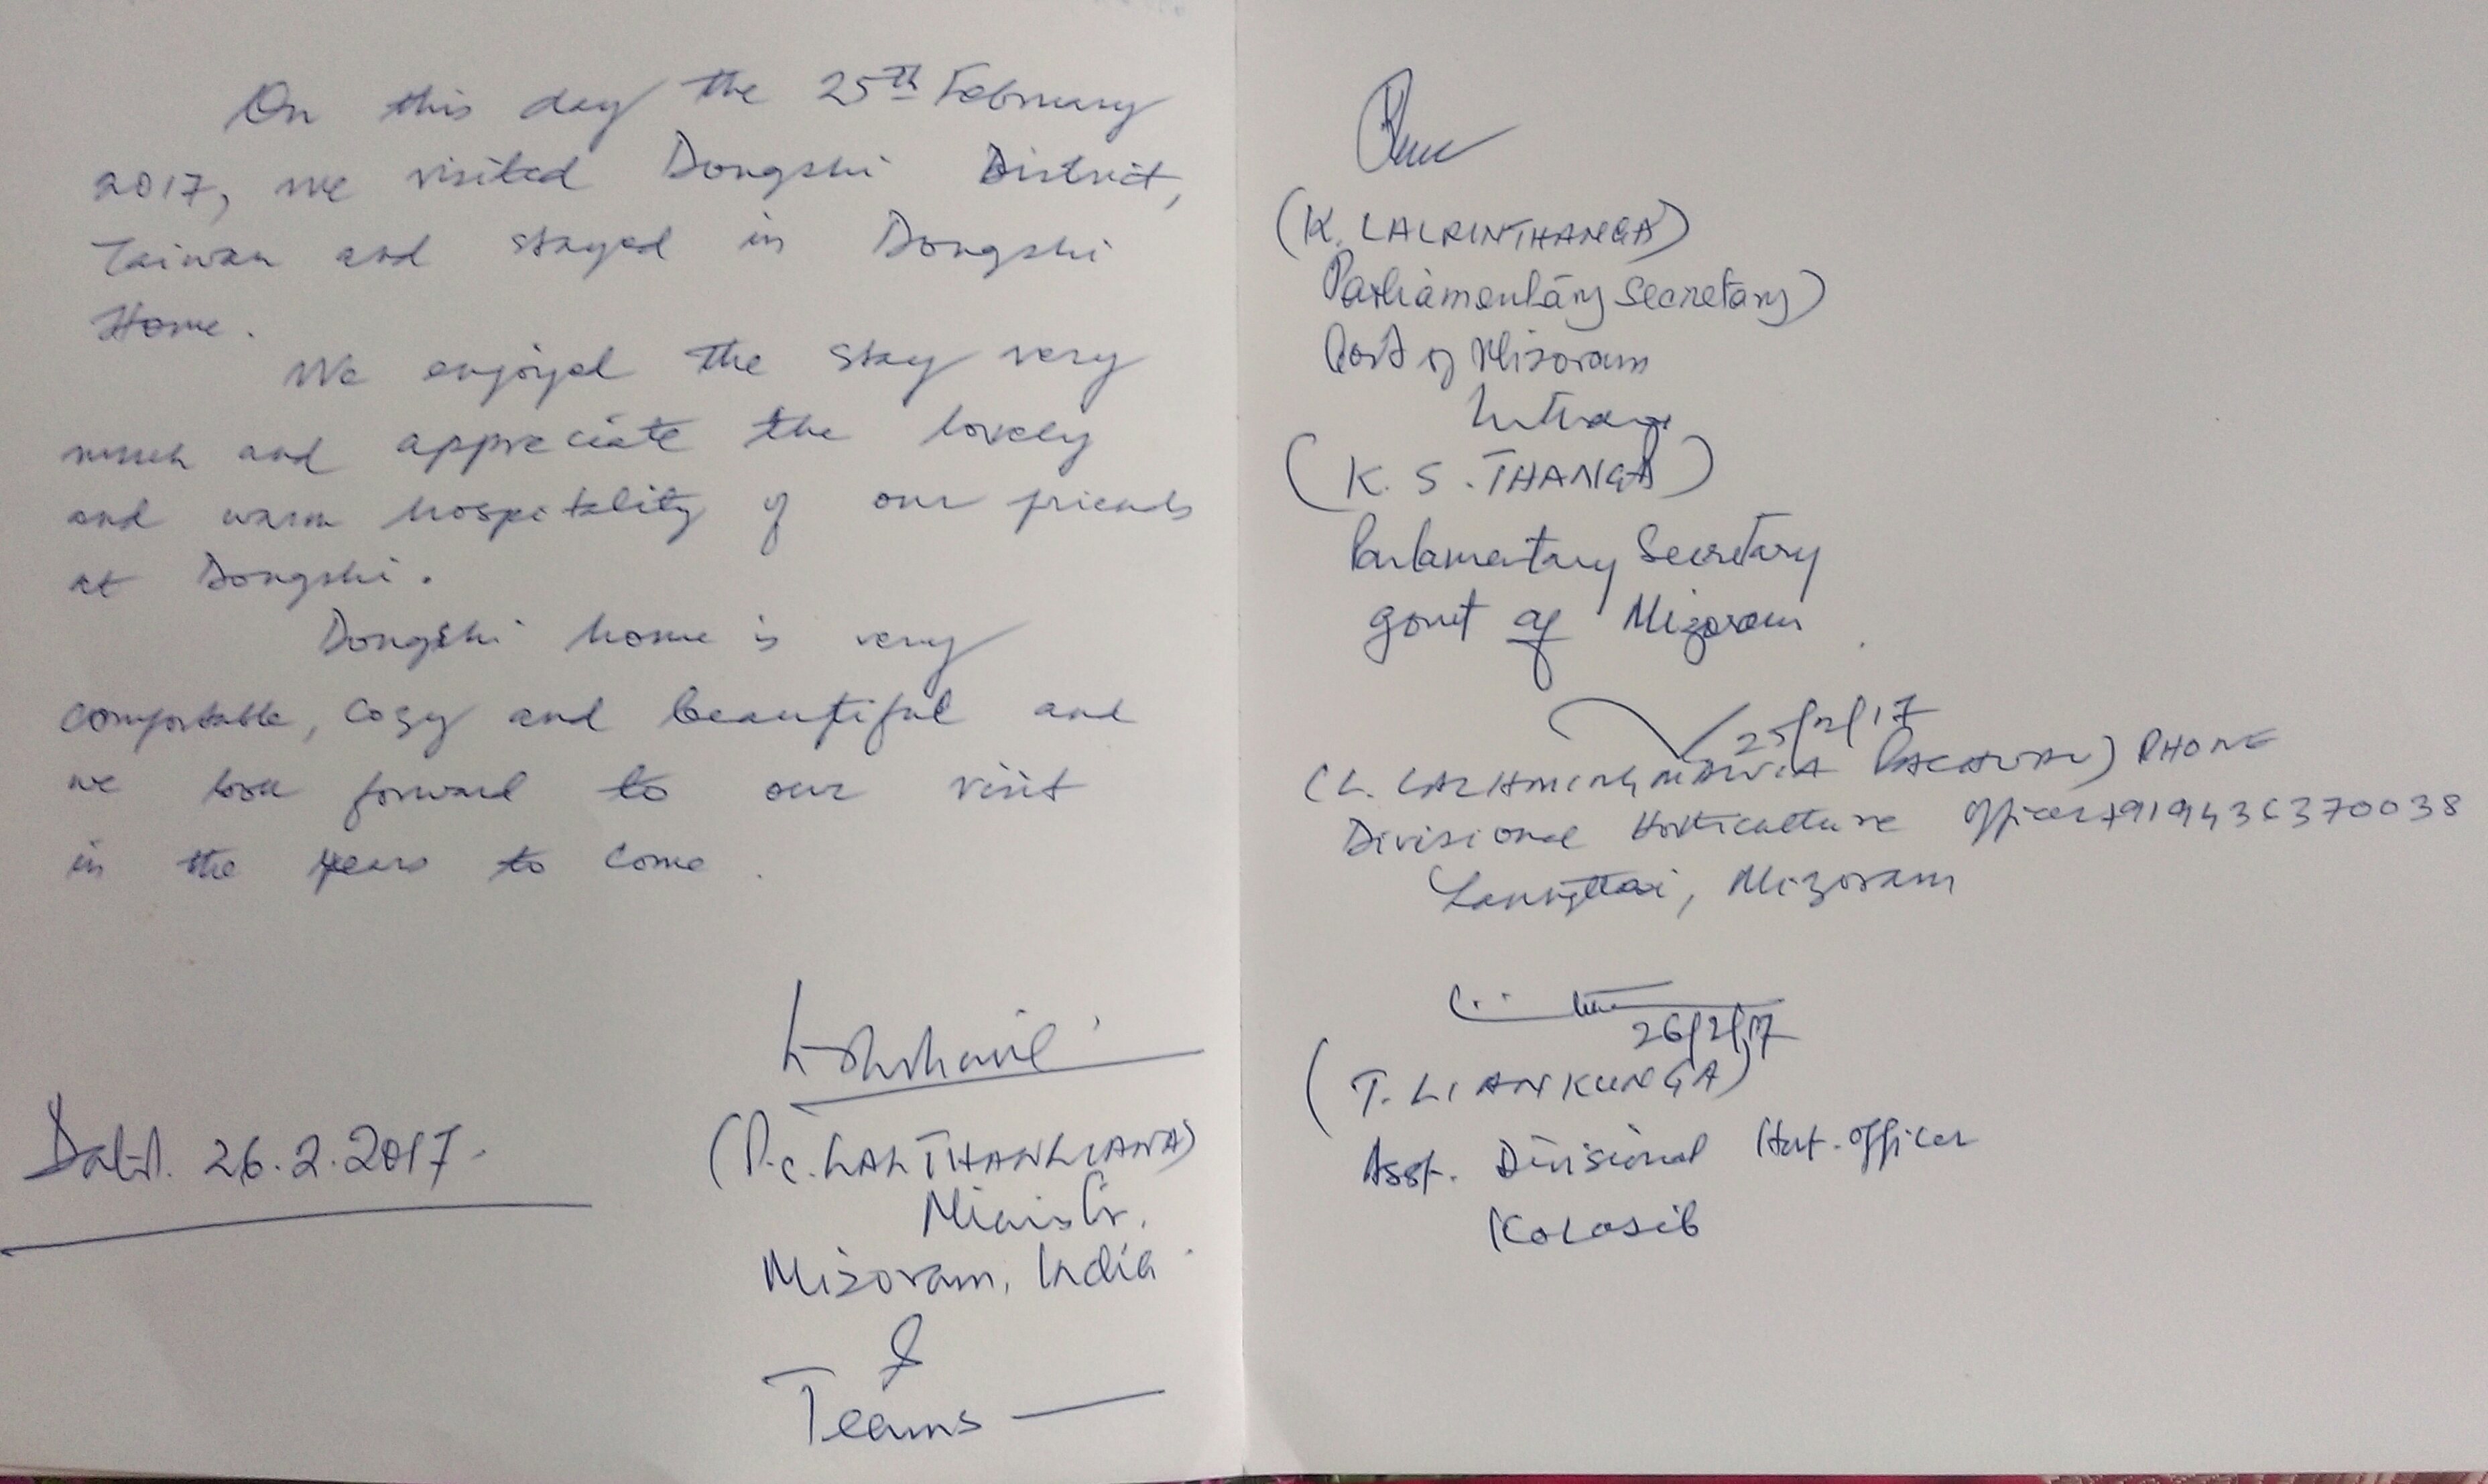 On this day the 25th February
2017, we visited Dongshi District,
Taiwan and stayed in Dongshi
Home.
We enjoyed the stay very
much and appreciate the lovely
and warm hospitality of our friends
at Dongshi.
Dongshi home is very
comfortable, cozy and beautiful and
we look forward to our visit
in the years to come.
Dated. 26.2.2017.
(P.C. LALTHANLIANA)
Minister,
Mizoram, India.
&
Teams
(K. LALRINTHANGA)
Parliamentary Secretary)
Govt of Mizoram
(K. S. THANGA)
Parlamentary Secretary
govt of Mizoram
25/2/17
(L. PACHUAU) PHONE
Divisional Horticulture Officer +919436370038
Lawngtlai, Mizoram
26/2/17
(T. LIANKUNGA)
Asst. Divisional Hort. officer
Kolasib